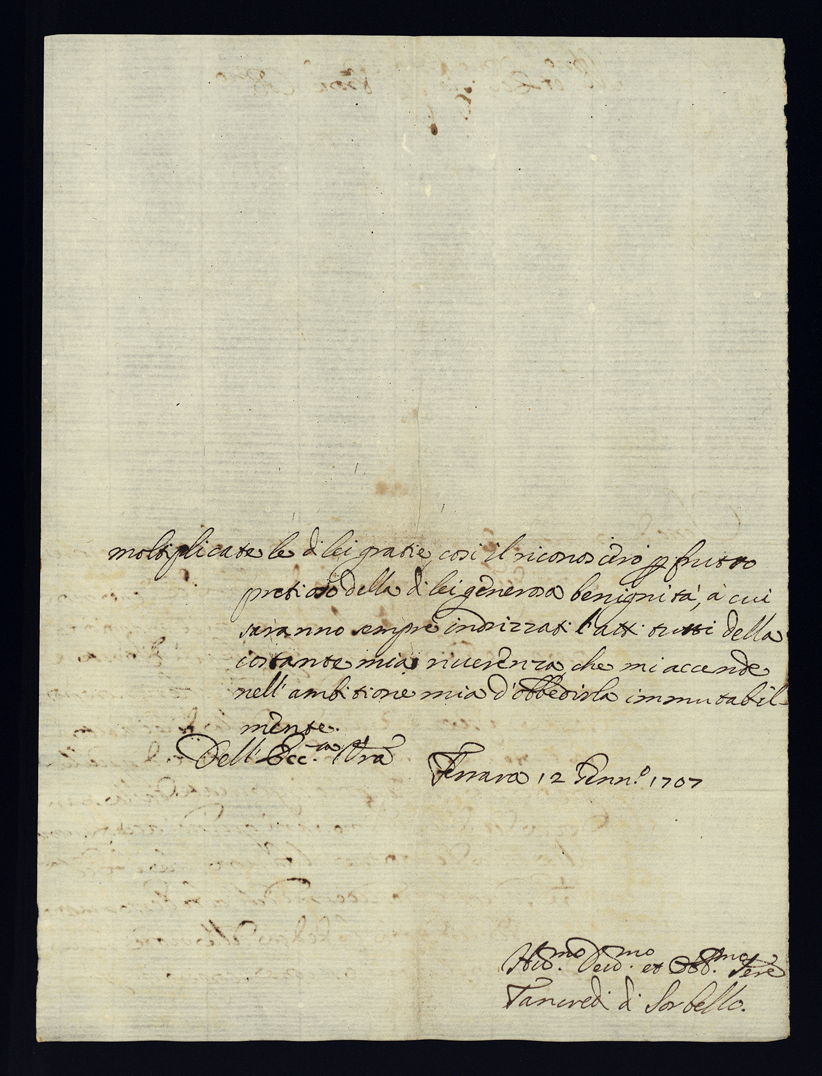 moltiplicate le di lei gratie, così il riconoscerò p frutto
pretioso della di lei generosa benignità, à cui
saranno sempre indrizzati l'atti tutti della
costante mia riverenza che mi accende
nell'ambitione mia d'obbedirla immutabil-
mente.
Dell'Ecc.za Vra
Ferrara 12 Genn.o 1707
Dev.mo et Obb.mo Sere
Tancredi di Sorbello.